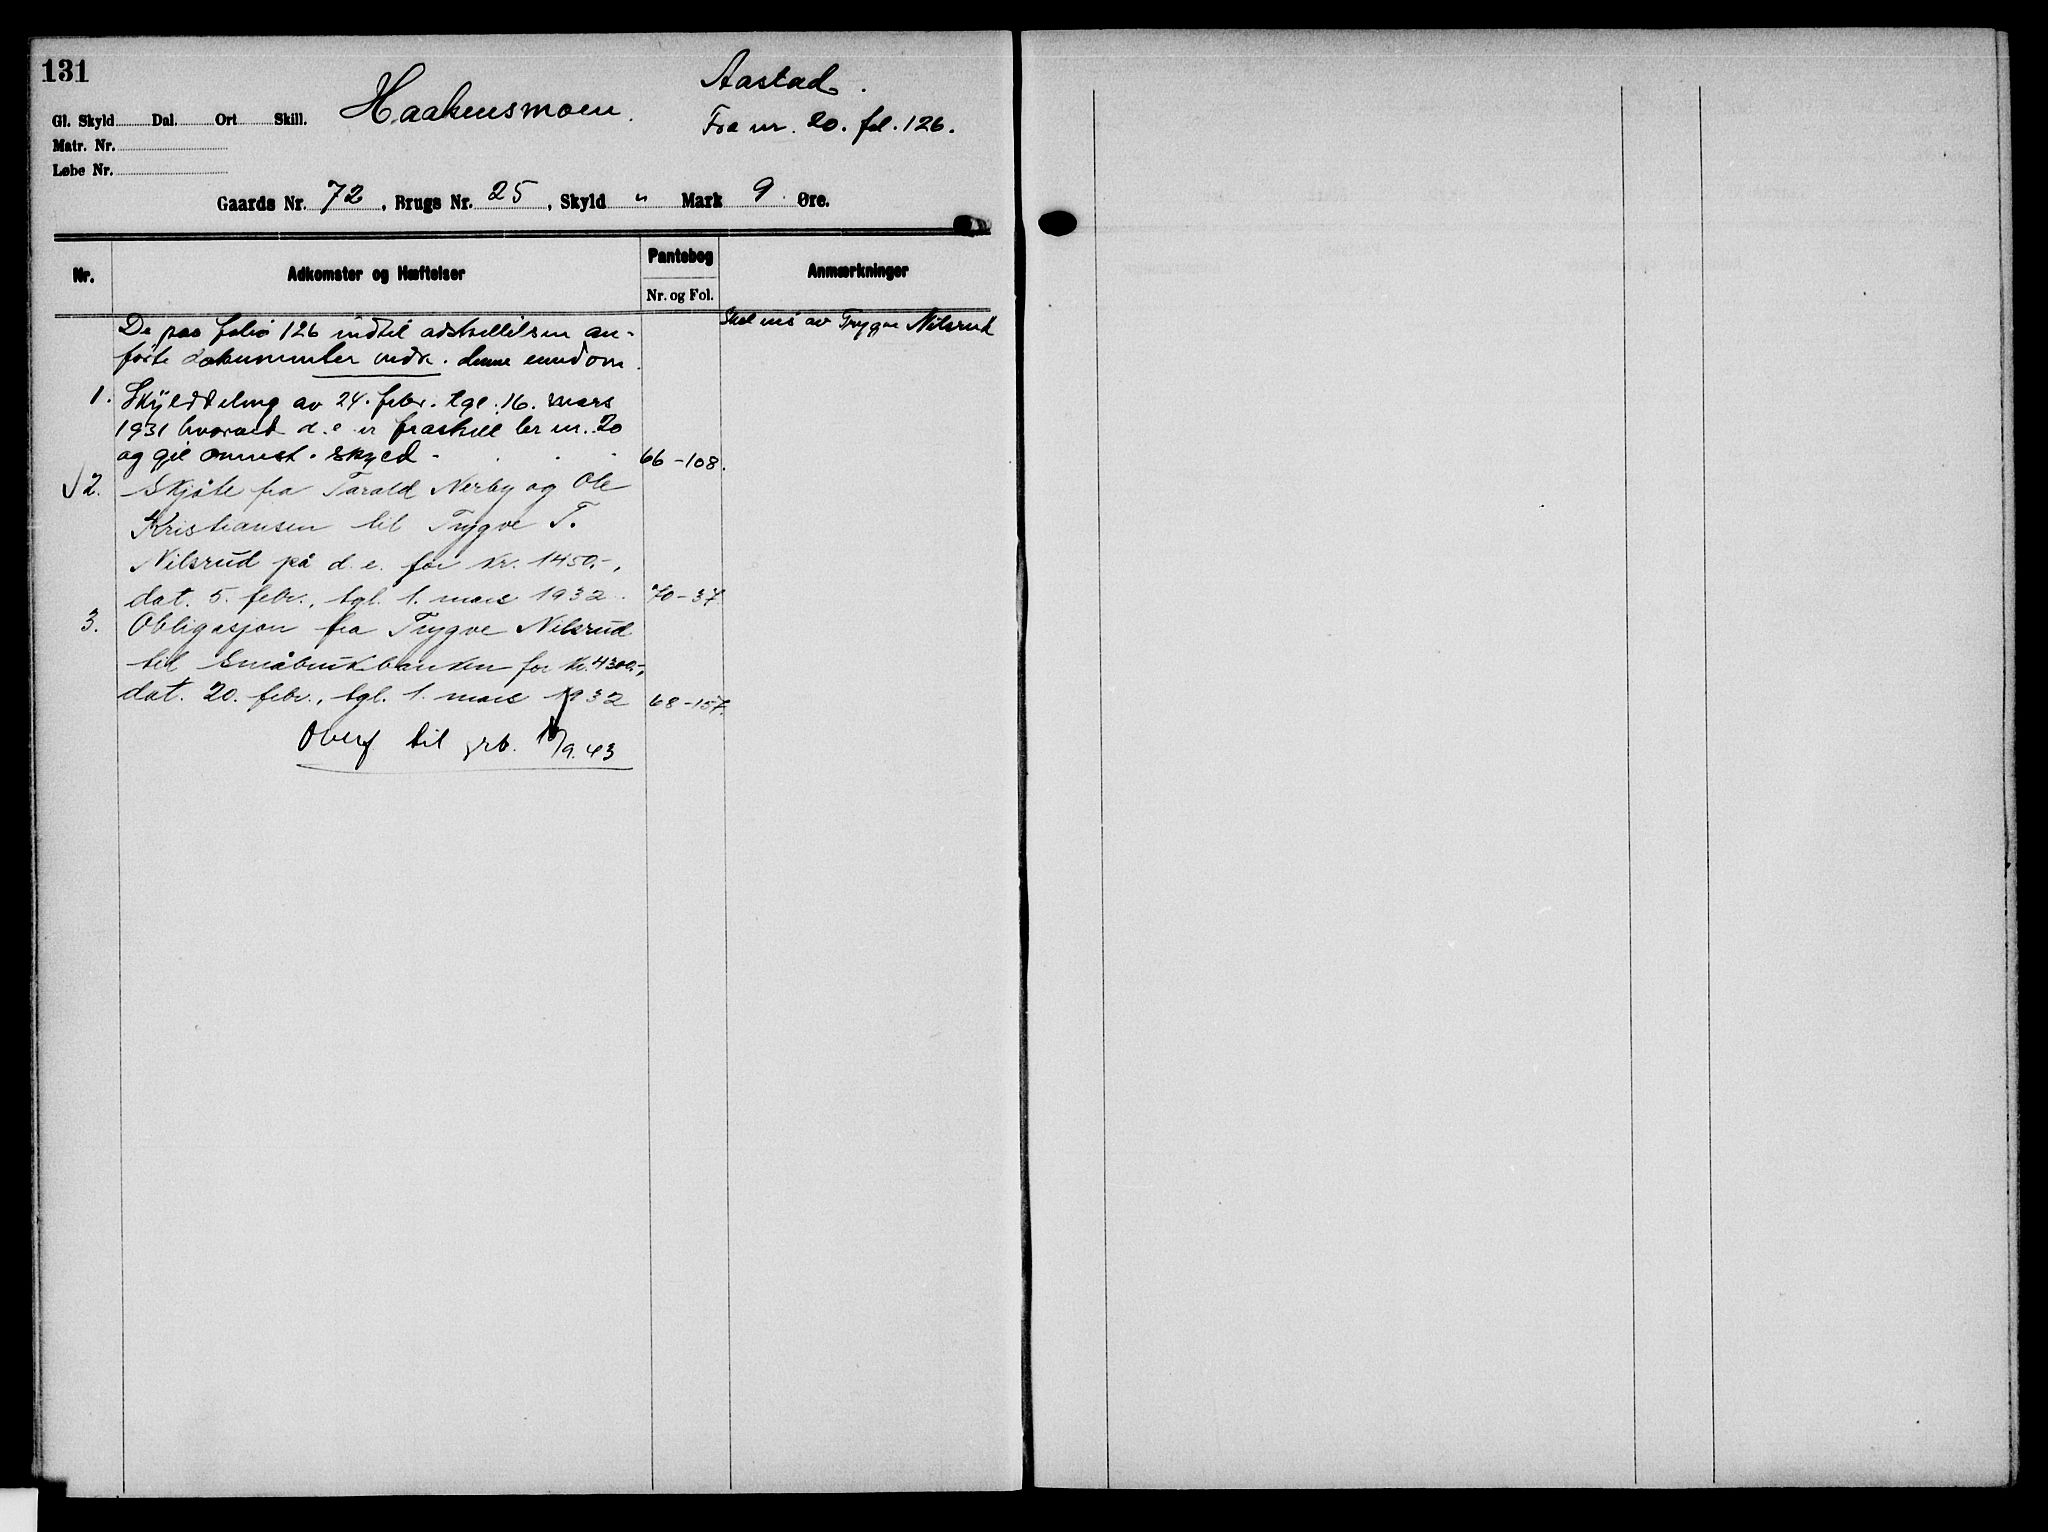 131
Haakensmoen.
Aastad.
Fra nr. 20. fol. 126.
Gl. Skyld Dal. Ort Skill.
Matr. Nr.
Løbe Nr.
Gaards Nr. 72, Brugs Nr. 25, Skyld " Mark 9 Øre.
Nr. Adkomster og Hæftelser Pantebog Anmærkninger
Nr. og Fol.
De paa folio 126 indtil adskillelsen an-
førte dokumenter vedk. denne eiendom.
Skal eies av Trygve Nilsrud
1. Skylddeling av 24. febr. tgl. 16. mars
1931 hvorved d. e. er fraskilt br nr. 20
og git ovennst. skyld. 66-108.
2. Skjøte fra Tarald Nerby og Ole
Kristiansen til Trygve T.
Nilsrud på d. e. for kr. 1450.-,
dat. 5. febr., tgl. 1. mars 1932. 70-37.
3. Obligasjon fra Trygve Nilsrud
til Småbrukbanken for kr. 4300.-,
dat. 20. febr., tgl. 1. mars 1932 68-157.
Overf til grb. /9.43